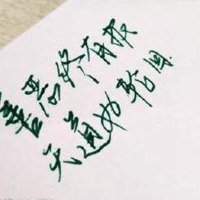 善恶终有报
天道好轮回